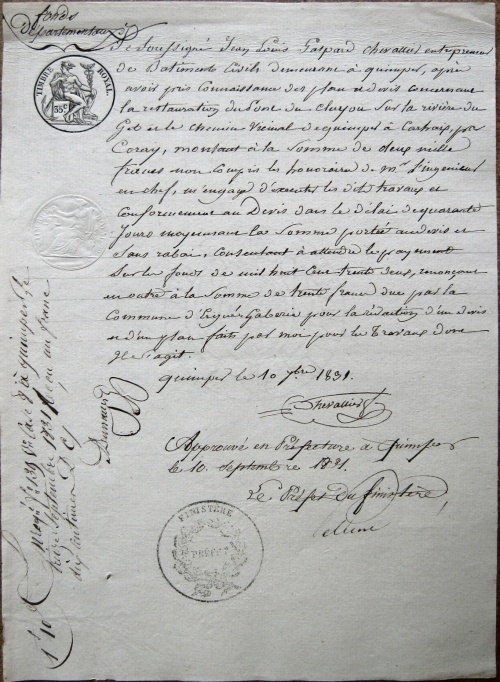 fonds
départementaux
TIMBRE ROYAL
35c
Je Soussigné Jean Louis Gaspard Chevallier entrepreneur
de Batiments Civils demeurant à quimper, après
avoir pris Connaissance des plan et devis concernant
la restauration du Pont du Cleuyou Sur la rivière du
Get et le chemin Vicinal de quimper à Carhaix, par
Coray, montant à la Somme de deux mille
francs non Compris les honoraire de Mr L'ingenieur
en chef, m'engage d'executer les dits travaux et
Conformement au Devis dans le délai de quarante
Jours moyennant la Somme portée au devis et
sans rabais, Consentant à attendre le payement
Sur les fonds de mil huit Cent trente deux, renonçant
en outre à la Somme de trente francs due par la
Commune d'Ergué-Gaberic pour la rédaction d'un devis
et d'un plan faits par moi pour les Travaux dont
il s'agit.
quimper le 10 7bre 1831.
Chevallier
Approuvé en Préfecture à Quimper
le 10. Septembre 1831.
Le Préfet du finistère,
FINISTÈRE
PRÉFET
Septembre 1831 Reçu un franc
dix centimes
1f 10c